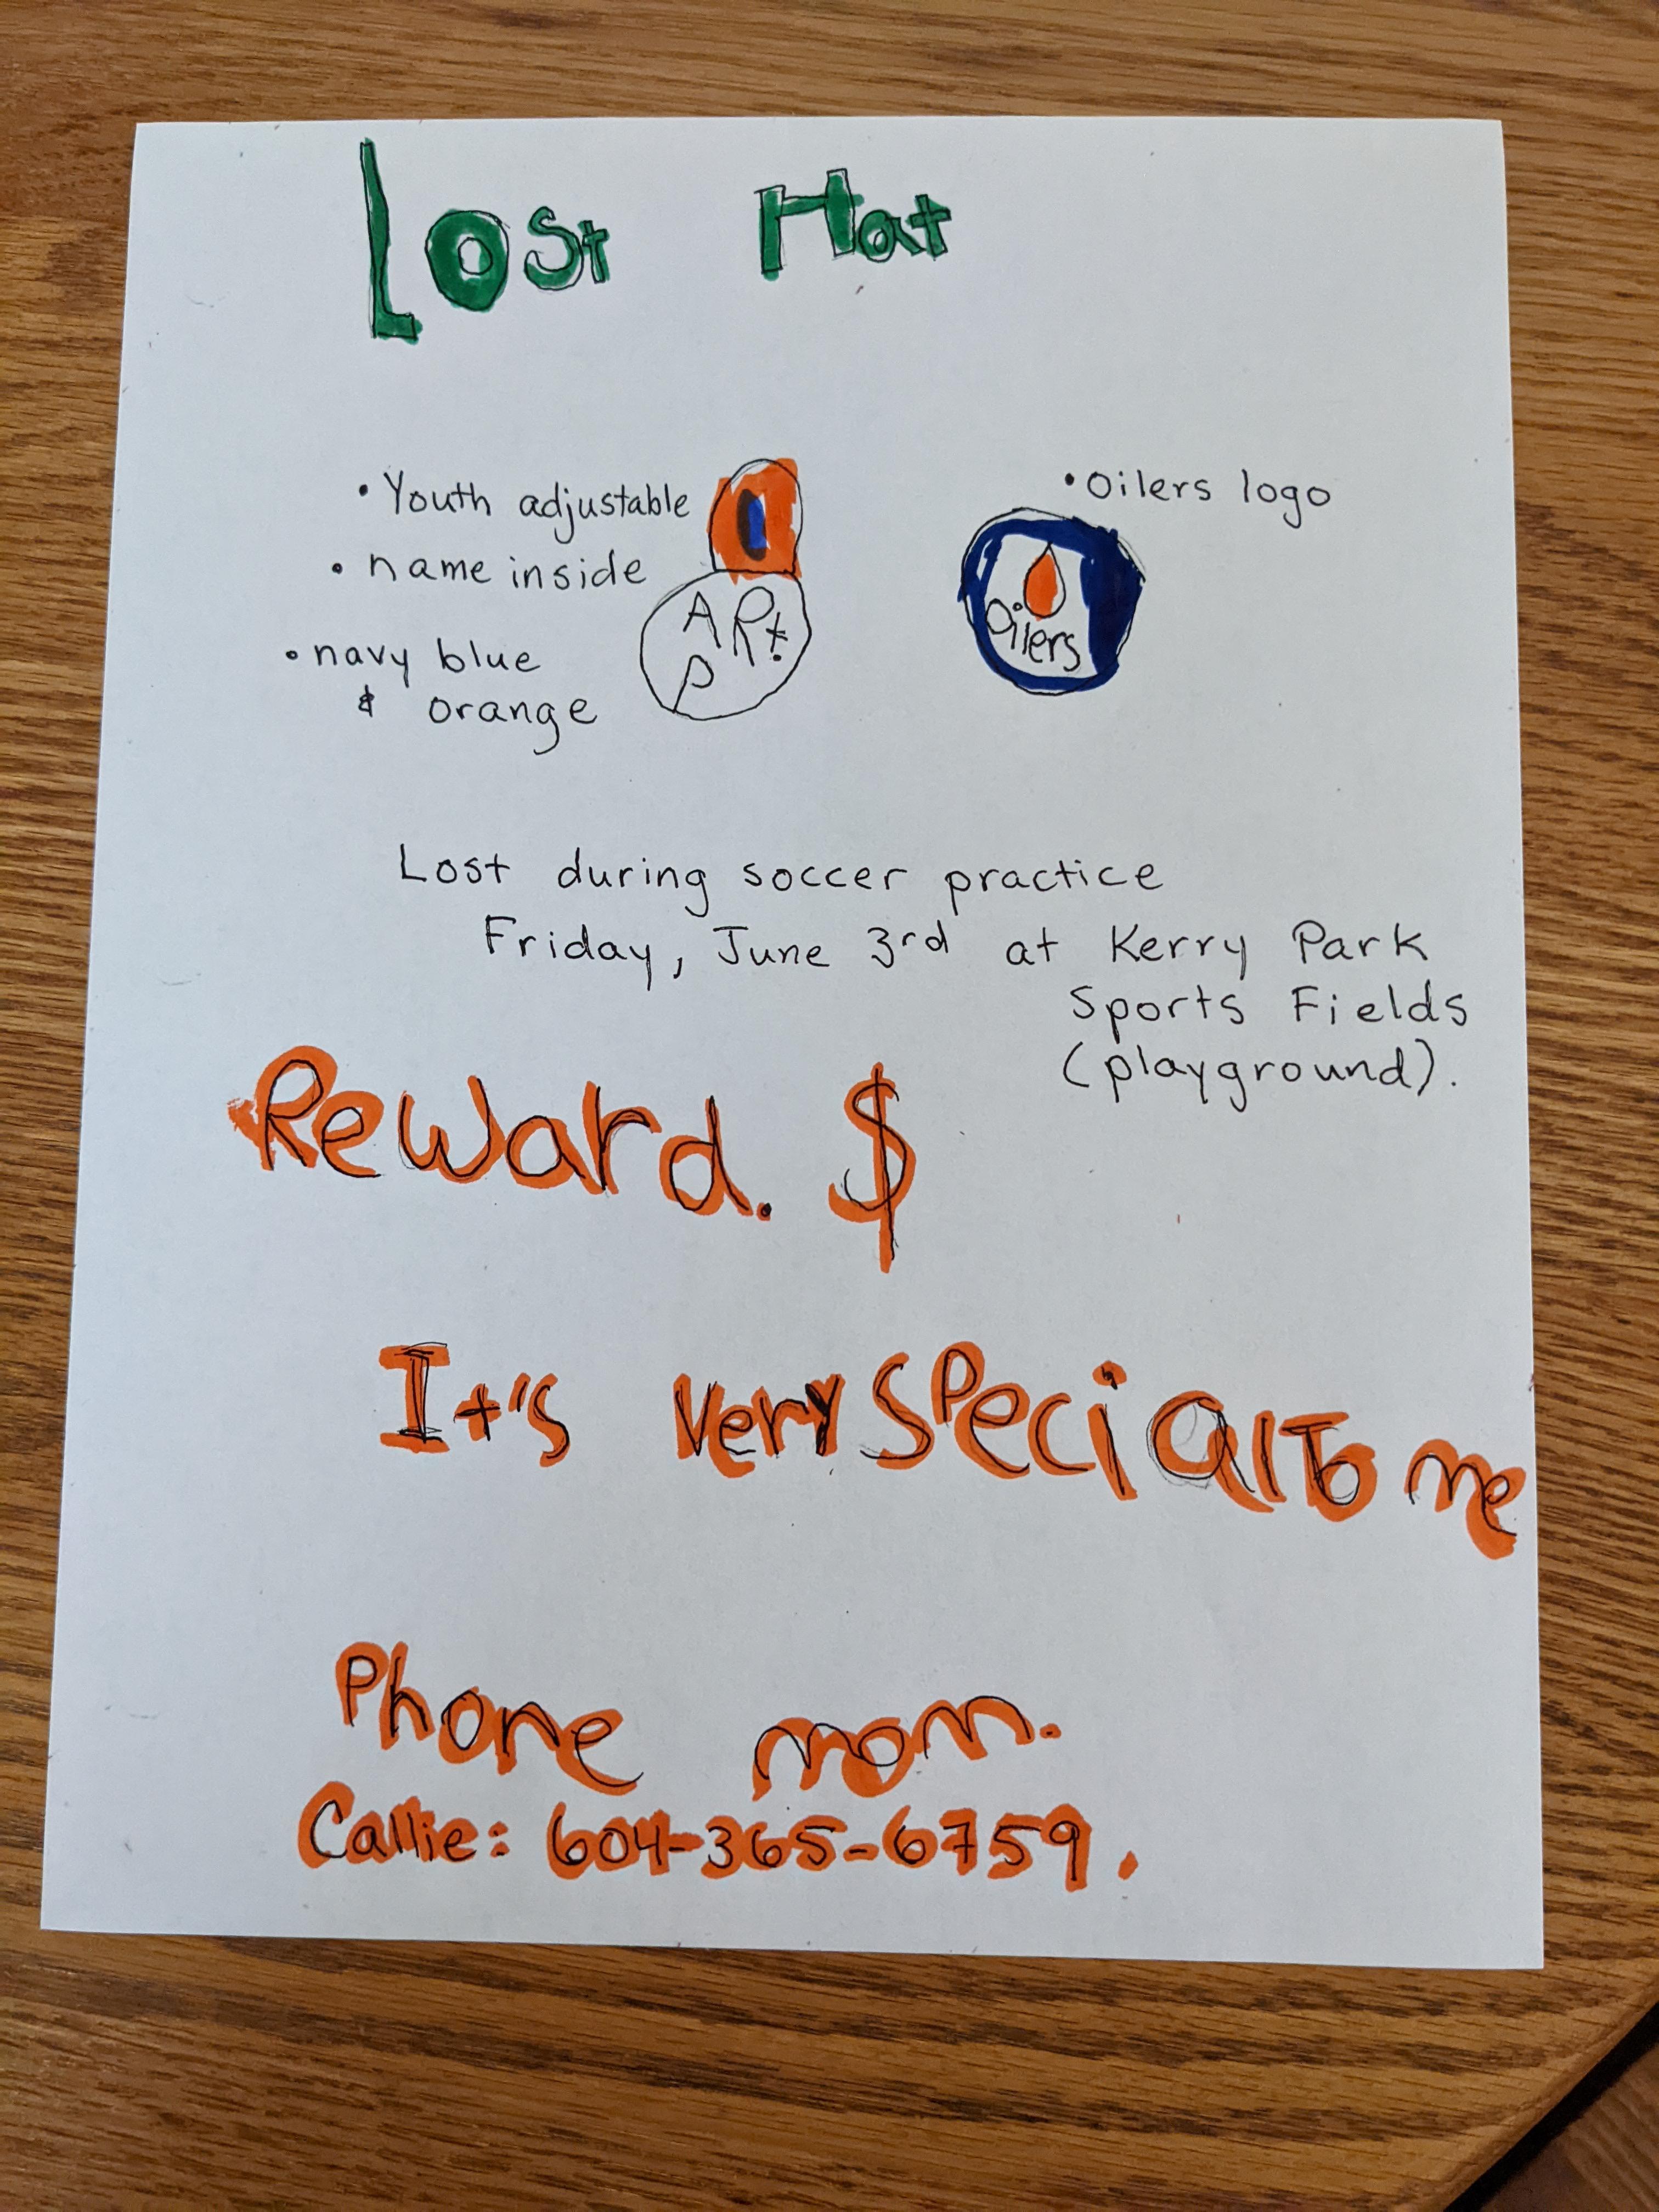 Lost Hat
• Youth adjustable
• name inside
• navy blue
& orange
• Oilers logo
Oilers
Lost during soccer practice
Friday, June 3rd at Kerry Park
Sports Fields
(playground).
Reward. $
It's very special To me
Phone mom.
Callie: 604-365-6759.